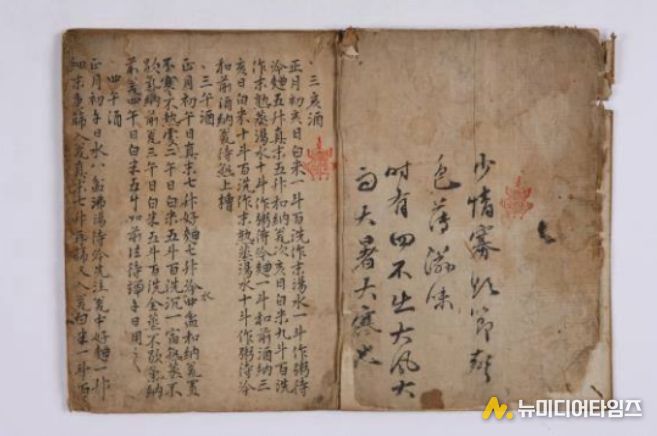 少情寡欲節聲
色薄滋味
時有四不出大風大
雨大暑大寒也
三亥酒
正月初亥日白米一斗百洗作末湯水一斗作粥待
冷麯五升真末五升和納瓮次亥日白米九斗百洗
作末熟蒸湯水十斗作粥待冷麯一斗和前酒納三
亥日白米十斗百洗作末熟蒸湯水十斗作粥待冷
和前酒納瓮待熟上槽
三午酒
正月初午日真末七升好麯七升冷水四盆和納瓮置
不寒不熱處二午日白米五斗百洗沉一宿熟蒸不
歇氣納前瓮三午日白米五斗百洗全蒸不歇氣納
前瓮四午日白米五斗如前法待端午日用之
四午酒
正月初午日水八盆沸湯待冷先注瓮中好麯一升
細末重篩入瓮真末七升再篩又入瓮白米一斗百
뉴미디어타임즈